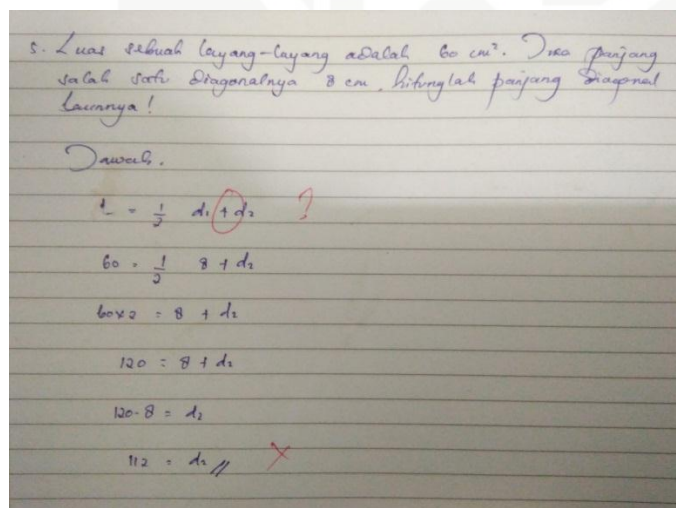 5. Luas sebuah layang-layang adalah 60 cm². Jika panjang
salah satu diagonalnya 8 cm, hitunglah panjang diagonal
lainnya!
Jawab.
L = 1/2 d₁ + d₂ ?
60 = 1/2 8 + d₂
60x2 = 8 + d₂
120 = 8 + d₂
120-8 = d₂
112 = d₂ // X